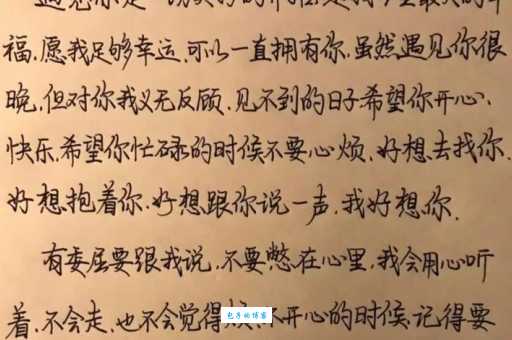 遇见你是一切美好的
福,愿我足够幸运,可以一直拥有你,虽然遇见你很
晚,但对你我义无反顾,见不到的日子希望你开心、
快乐,希望你忙碌的时候不要心烦,好想去找你,
好想抱着你,好想跟你说一声,我好想你.
有委屈要跟我说,不要憋在心里,我会用心听
着,不会走,也不会觉得烦,不开心的时候,记得要
包子的博客